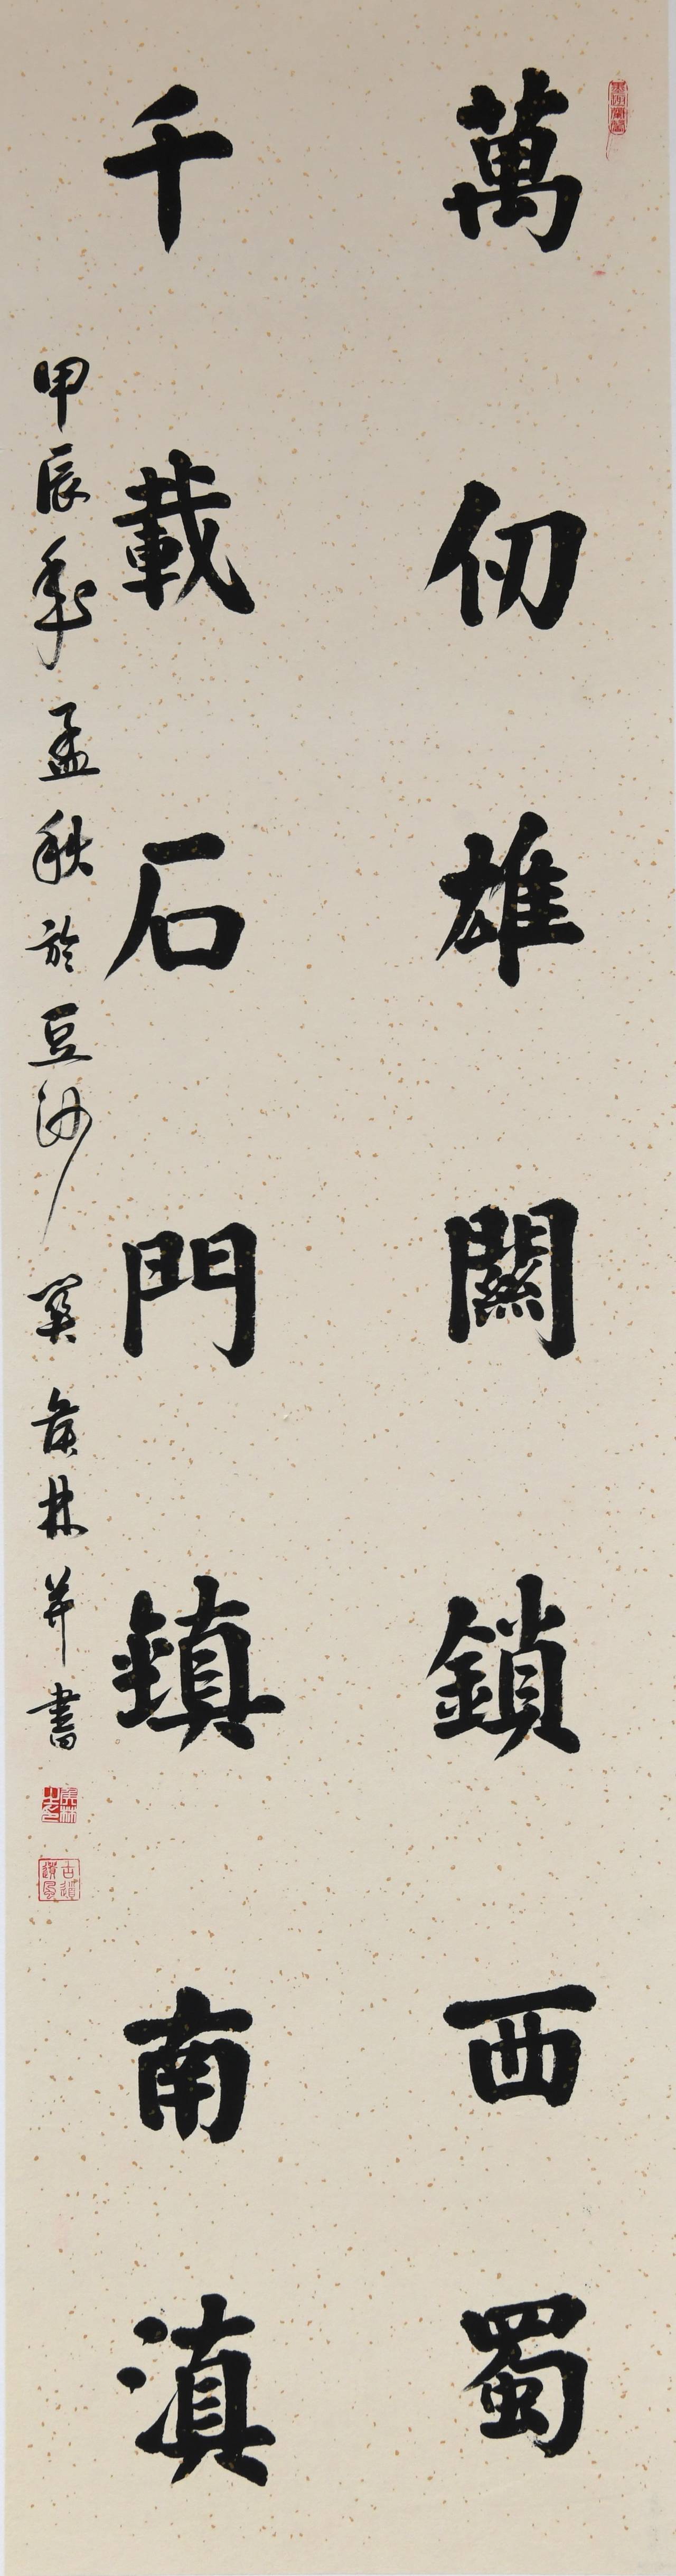 萬仞雄關鎖西蜀
千載石門鎮南滇
甲辰年孟秋於豆沙關 侯林并書